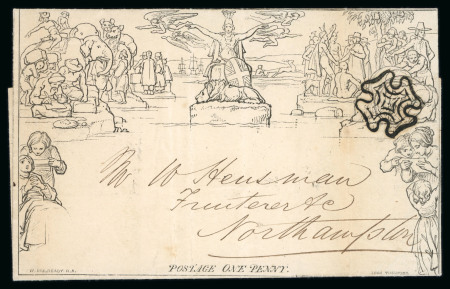 Mr W Hensman
Fruiterer &c
Northampton
W. MULREADY R.A.
JOHN THOMPSON
POSTAGE ONE PENNY.